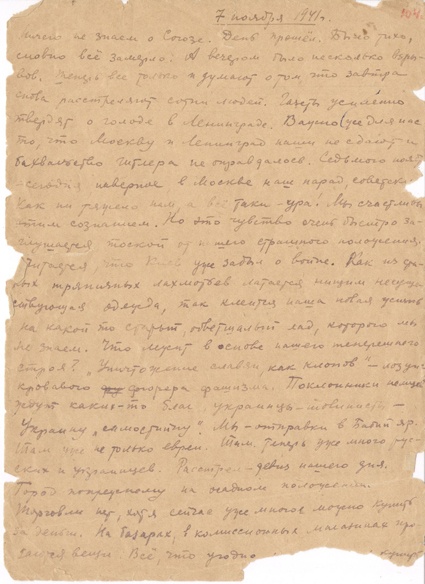 7 ноября 1941 г.
104.
Ничего не знаем о Союзе. День прошёл. Было тихо,
словно всё замерло. А вечером было несколько взры-
вов. Теперь все только и думают о том что завтра
снова расстреляют сотни людей. Газеты усиленно
твердят о голоде в Ленинграде. Важно (уже для нас
то, что Москву и Ленинград наши не сдают и
бахвальство гитлера не оправдалось. Седьмого нояб-
- сегодня наверное в Москве наш парад советск
Как ни тяжело нам, а всё таки - ура! Мы счастливы
этим сознанием. Но это чувство очень быстро за-
глушается тоской от нашего страшного положения.
Читается что Киев уже забыл о войне. Как из ста-
рых тряпичных лахмотьев латается нищим несуще-
ствующая одежда, так клеится наша новая жизнь
на какой то старый, обветшалый лад, которого мы
не знаем. Что лежит в основе нашего теперешнего
строя? "Уничтожение славян, как клопов" - лозунг
кровавого фюрера фашизма. Поклонники немцев
ждут каких-то благ украинцы-шовинисты -
Украину "самостийну". Мы - отправки в Бабий яр.
Там уже не только евреи. Там теперь уже много рус-
ских и украинцев. Расстрел - девиз нашего дня.
Город попрежнему на осадном положении.
Торговли нет, хотя сейчас уже многое можно купить
за деньги. На базарах, в комиссионных магазинах про-
даются вещи. Всё, что угодно